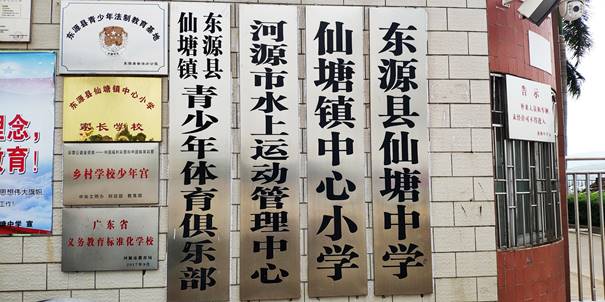 东源县青少年法制教育基地
东源县仙塘镇中心小学
家长学校
乡村学校少年宫
广东省
义务教育标准化学校
2017年9月
东源县
仙塘镇
青少年体育俱乐部
河源市水上运动管理中心
仙塘镇中心小学
东源县仙塘中学
告示
念，
教育！